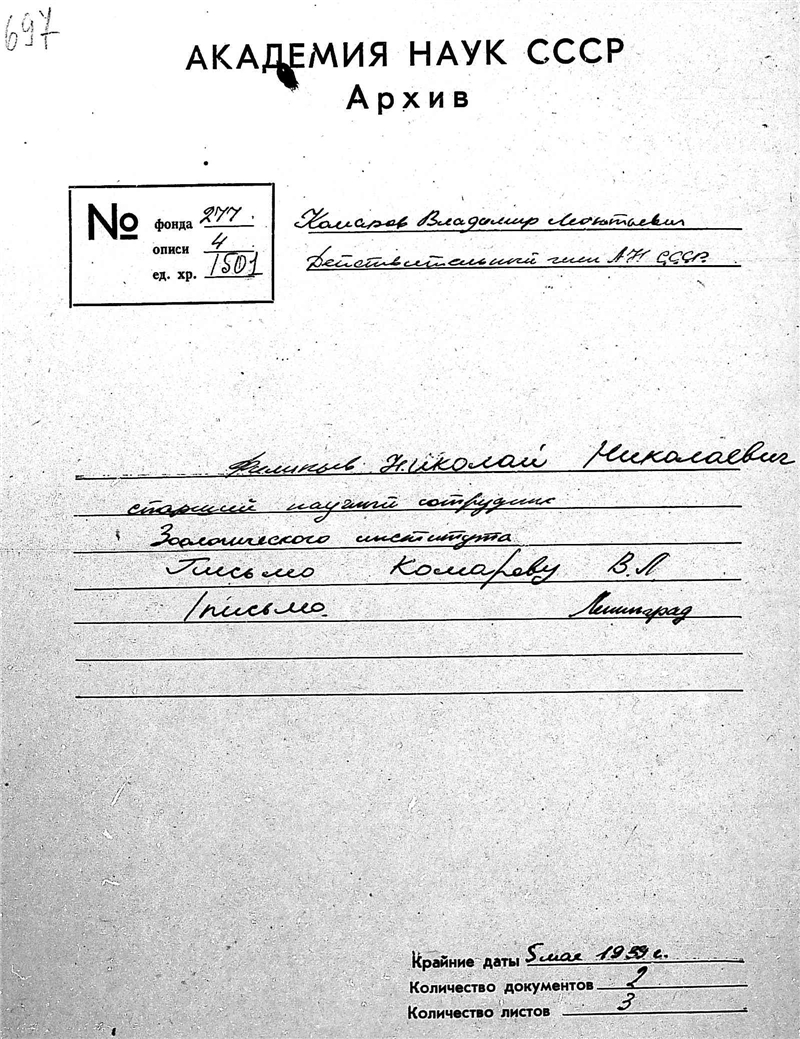 697
АКАДЕМИЯ НАУК СССР
Архив
№ фонда 277.
описи 4
ед. хр. 1501
Комаров Владимир Леонтьевич
Действительный член АН СССР.
Филипьев Николай Николаевич
старший научный сотрудник
Зоологического института
Письмо Комарову В.Л
1 письмо. Ленинград
Крайние даты 5 мая 1939 г.
Количество документов 2
Количество листов 3